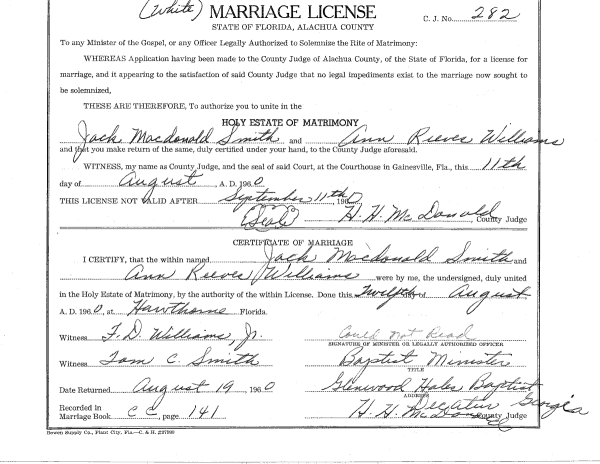 (White) MARRIAGE LICENSE
STATE OF FLORIDA, ALACHUA COUNTY
C. J. No. 282
To any Minister of the Gospel, or any Officer Legally Authorized to Solemnize the Rite of Matrimony:
WHEREAS Application having been made to the County Judge of Alachua County, of the State of Florida, for a license for
marriage, and it appearing to the satisfaction of said County Judge that no legal impediments exist to the marriage now sought to
be solemnized,
THESE ARE THEREFORE, To authorize you to unite in the
HOLY ESTATE OF MATRIMONY
Jack Macdonald Smith and Ann Reeves Williams
and that you make return of the same, duly certified under your hand, to the County Judge aforesaid.
WITNESS, my name as County Judge, and the seal of said Court, at the Courthouse in Gainesville, Fla., this 11th
day of August, A. D. 1960
THIS LICENSE NOT VALID AFTER September 11th, 1960
(Seal) H. H. McDonald County Judge
CERTIFICATE OF MARRIAGE
I CERTIFY, that the within named Jack Macdonald Smith and
Ann Reeves Williams were by me, the undersigned, duly united
in the Holy Estate of Matrimony, by the authority of the within License. Done this Twelfth day of August
A. D. 1960, at Hawthorne Florida.
Witness F. D. Williams, Jr. Could Not Read
SIGNATURE OF MINISTER OR LEGALLY AUTHORIZED OFFICER
Witness Tom C. Smith Baptist Minister
TITLE
Date Returned August 19, 1960 Glenwood Baptist
ADDRESS
Decatur Georgia
Recorded in
Marriage Book C C, page 141 H. H. McDonald County Judge
Bowen Supply Co., Plant City, Fla.—C. & H.